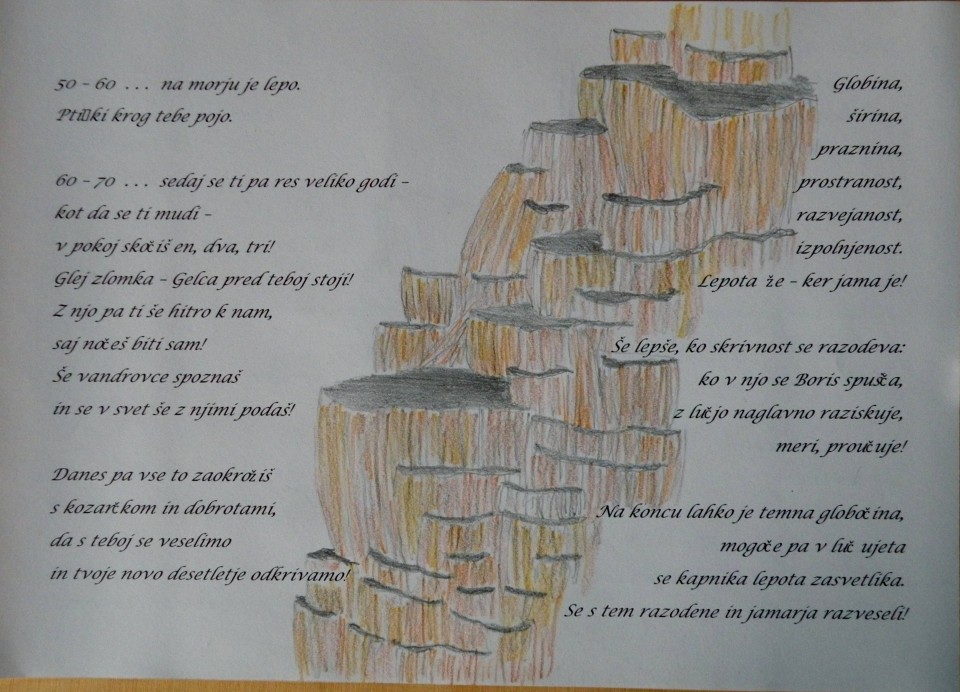 50 – 60 ... na morju je lepo.
Ptički krog tebe pojo.
60 – 70 ... sedaj se ti pa res veliko godi –
kot da se ti mudi –
v pokoj skočiš en, dva, tri!
Glej zlomka – Gelca pred teboj stoji!
Z njo pa ti še hitro k nam,
saj nočeš biti sam!
Še vandrovce spoznaš
in se v svet še z njimi podaš!
Danes pa vse to zaokrožiš
s kozarčkom in dobrotami,
da s teboj se veselimo
in tvoje novo desetletje odkrivamo!
Globina,
širina,
praznina,
prostranost,
razvejanost,
izpolnjenost.
Lepota že – ker jama je!
Še lepše, ko skrivnost se razodeva:
ko v njo se Boris spušča,
z lučjo naglavno raziskuje,
meri, proučuje!
Na koncu lahko je temna globočina,
mogoče pa v luč ujeta
se kapnika lepota zasvetlika.
Se s tem razodene in jamarja razveseli!